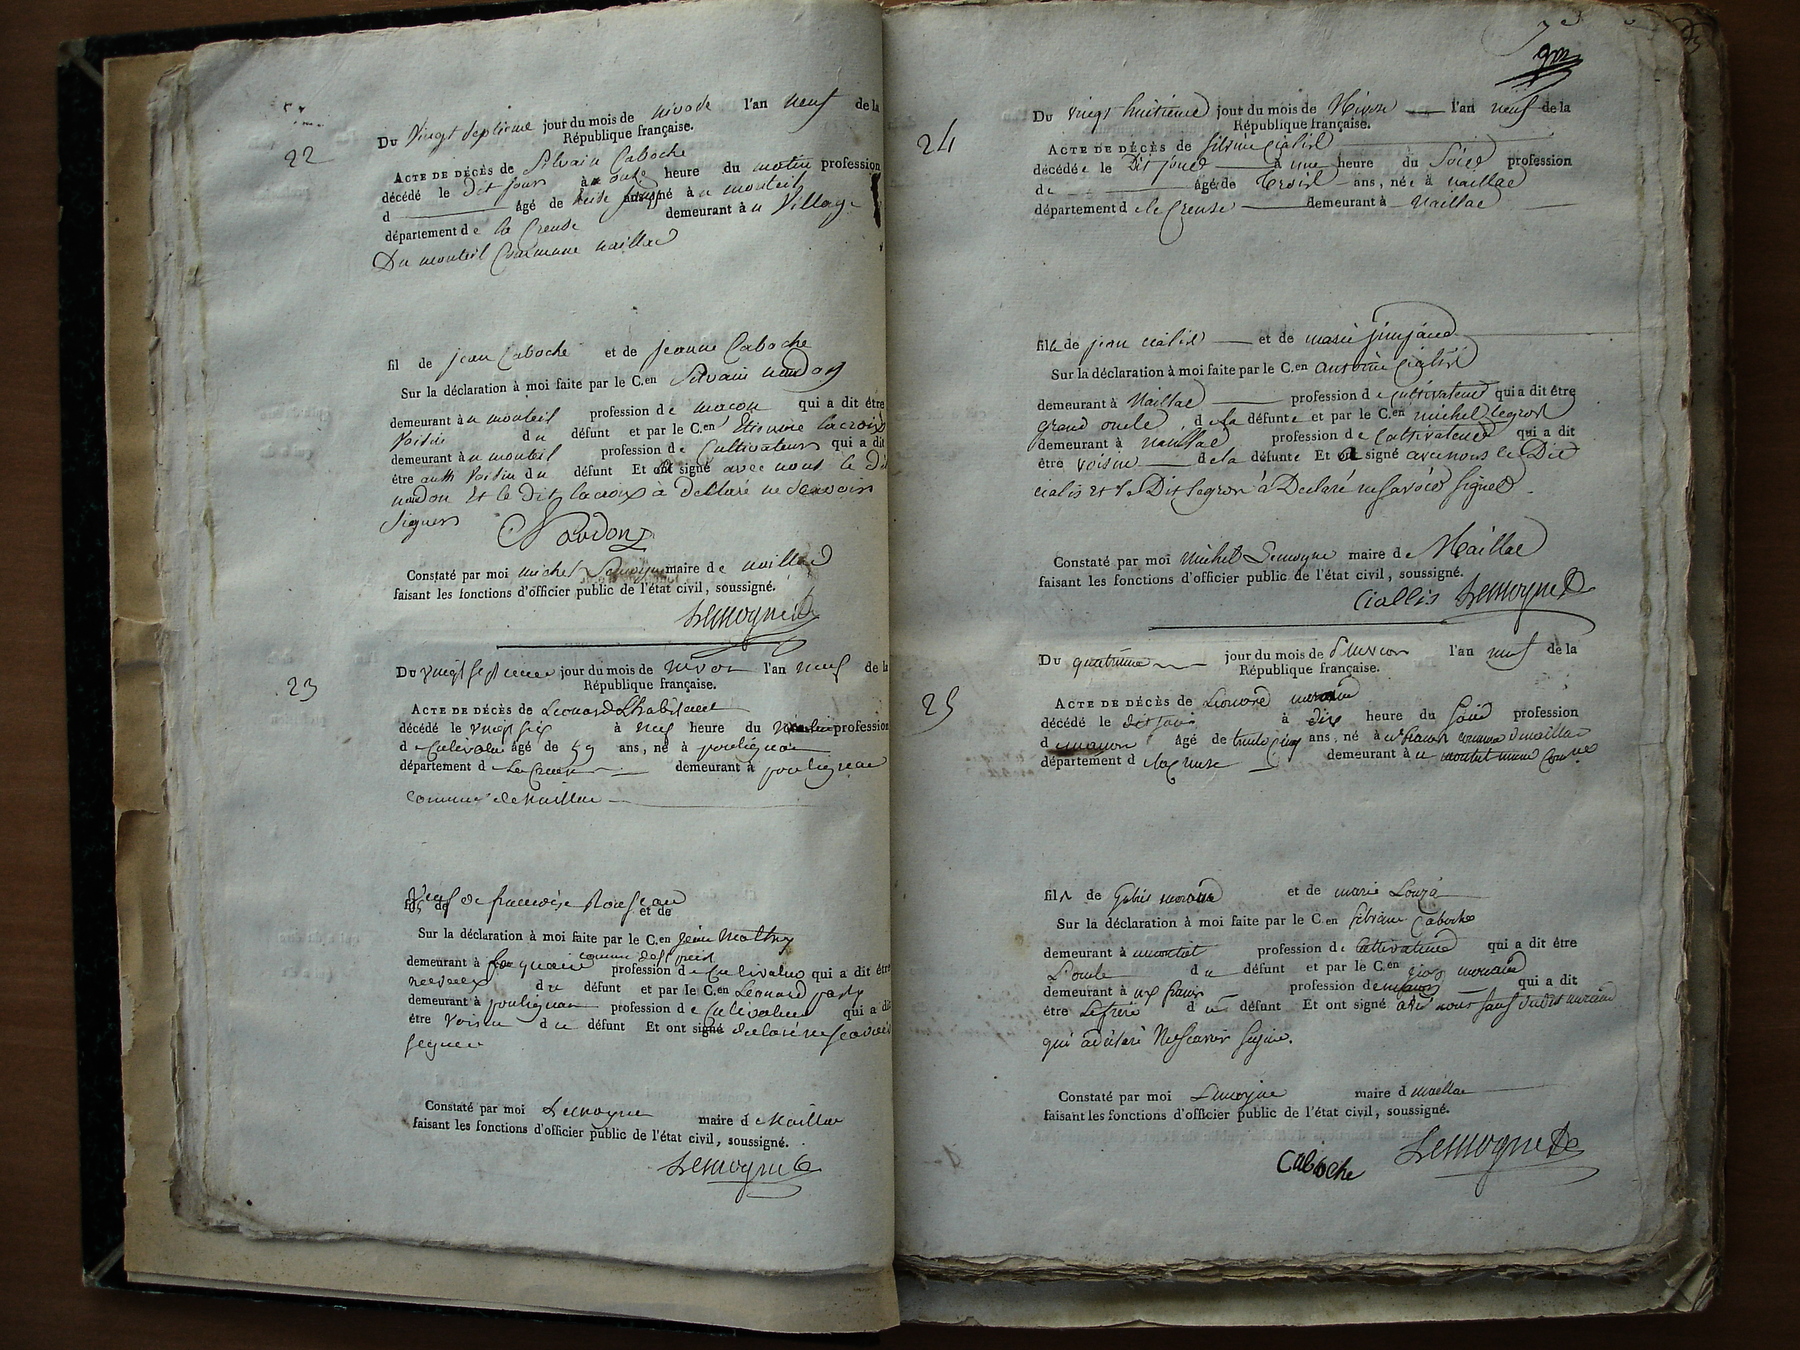 22
Du vingt septieme jour du mois de nivose l'an neuf de la
République française.
ACTE DE DÉCÈS de Silvain Caboche
décédé le dit jour à onze heure du matin profession
d âgé de né à u monteil
département de la Creuse demeurant à u Village
Du monteil Commune naillac
fil de jean Caboche et de jeanne Caboche
Sur la déclaration à moi faite par le C.en Silvain naudon
demeurant à u monteil profession de macon qui a dit être
Voisin du défunt et par le C.en Etienne lacroix
demeurant à u monteil profession de Cultivateur qui a dit
être aussi Voisin du défunt Et ont signé avec nous le dit
naudon Et le dit lacroix à declaré ne Scavoir
Signer
Naudon
Constaté par moi michel Lemoyne maire de naillac
faisant les fonctions d'officier public de l'état civil, soussigné.
Lemoyne
23
Du vingt septieme jour du mois de nivos l'an neuf de la
République française.
ACTE DE DÉCÈS de Leonard Lhabitant
décédé le vingt six à neuf heure du matin profession
de Cultivateur âgé de 59 ans, né à pouligna
département de La Creuse demeurant à poulignac
Commune de Naillac
Veuf de francoise
fils de et de
Sur la déclaration à moi faite par le C.en jean Mathey
demeurant à profession de Cultivateur qui a dit être
neveux du défunt et par le C.en Leonard
demeurant à poulignac profession de Cultivateur qui a dit
être Voisin du défunt Et ont signé declaré ne scavoir
signer
Constaté par moi Lemoyne maire de Naillac
faisant les fonctions d'officier public de l'état civil, soussigné.
Lemoyne
24
Du vingt huitieme jour du mois de Nivos l'an neuf de la
République française.
ACTE DE DÉCÈS de Silvine Cialis
décédée le Dit jour à une heure du Soir profession
de âgé de trois ans, née à naillac
département de le Creuse demeurant à Naillac
fille de jean cialis et de marie
Sur la déclaration à moi faite par le C.en antoine Cialis
demeurant à Naillac profession de Cultivateur qui a dit être
grand oncle de la défunte et par le C.en michel legros
demeurant à naillac profession de Cultivateur qui a dit
être voisin de la défunte Et ont signé avec nous le Dit
cialis et le Dit legros à Declaré ne savoir signer
Constaté par moi michel Lemoyne maire de Naillac
faisant les fonctions d'officier public de l'état civil, soussigné.
Ciallis Lemoyne
25
Du quatrieme jour du mois de pluvios l'an neuf de la
République française.
ACTE DE DÉCÈS de Lionard
décédé le dit jour à dix heure du Soir profession
de macon âgé de trente cinq ans, né à commune de naillac
département de la Creuse demeurant à
fils de et de marie
Sur la déclaration à moi faite par le C.en Caboche
demeurant à montet profession de Cultivateur qui a dit être
L'oncle du défunt et par le C.en
demeurant à profession de macon qui a dit
être Le frere du défunt Et ont signé avec nous sauf
qui a déclaré Ne Scavoir Signer.
Constaté par moi Lemoyne maire de naillac
faisant les fonctions d'officier public de l'état civil, soussigné.
Caboche Lemoyne